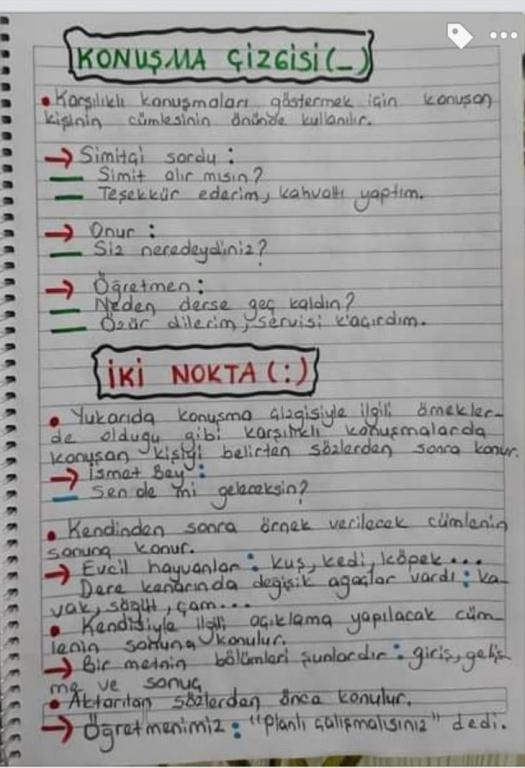 KONUŞMA ÇİZGİSİ (_)
• Karşılıklı konuşmaları göstermek için konuşan
kişinin cümlesinin önünde kullanılır.
→ Simitçi sordu :
— Simit alır mısın?
— Teşekkür ederim, kahvaltı yaptım.
→ Onur :
— Siz neredeydiniz?
→ Öğretmen :
— Neden derse geç kaldın?
— Özür dilerim, servisi kaçırdım.
İKİ NOKTA ( : )
• Yukarıda konuşma çizgisiyle ilgili örnekler-
de olduğu gibi karşılıklı konuşmalarda
konuşan kişiyi belirten sözlerden sonra konur.
→ İsmet Bey :
— Sen de mi geleceksin?
• Kendinden sonra örnek verilecek cümlenin
sonuna konur.
→ Evcil hayvanlar : kuş, kedi, köpek ...
Dere kenarında değişik ağaçlar vardı : ka-
vak, söğüt, çam...
• Kendisiyle ilgili açıklama yapılacak cüm-
lenin sonuna konulur.
→ Bir metnin bölümleri şunlardır : giriş, geliş-
me ve sonuç.
• Aktarılan sözlerden önce konulur.
→ Öğretmenimiz : "Planlı çalışmalısınız" dedi.